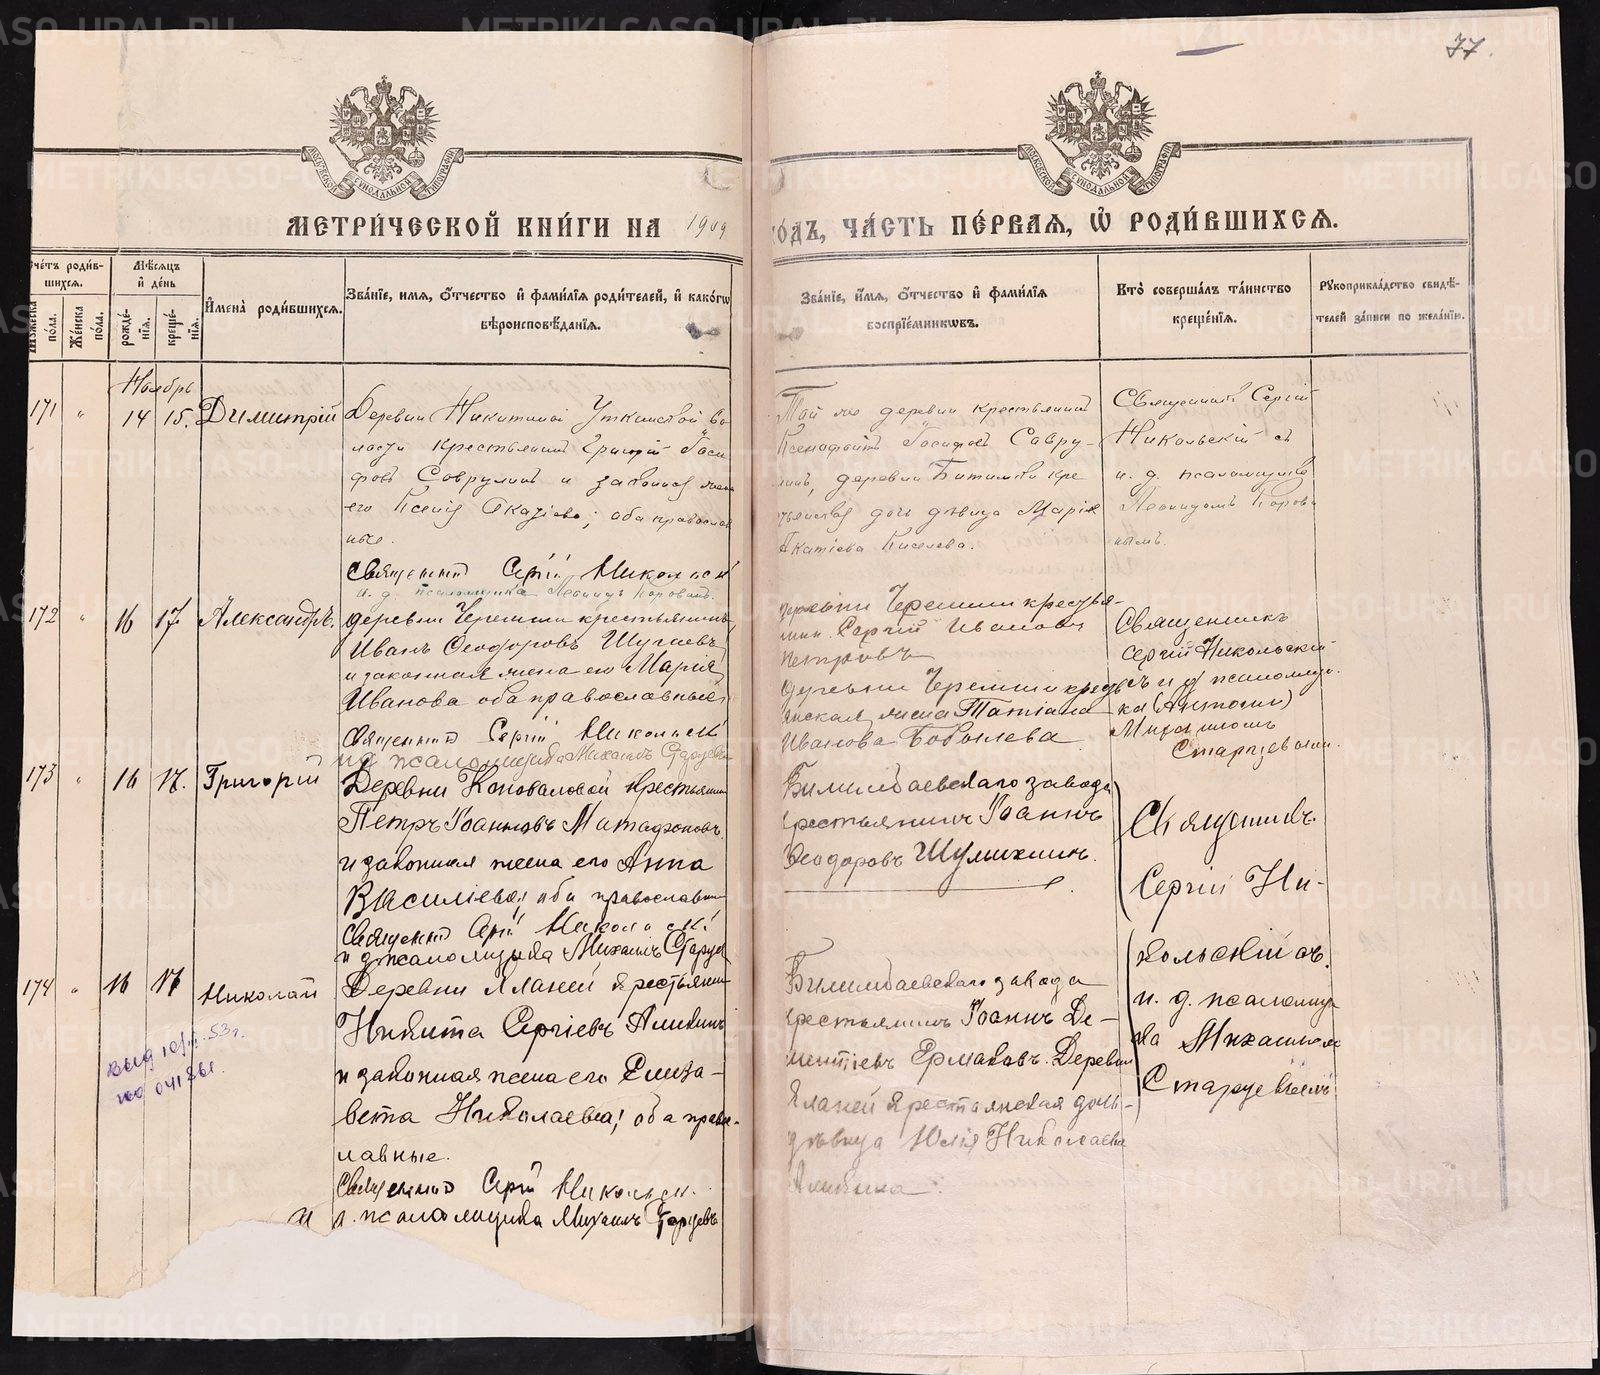 77.
МЕТРИ́ЧЕСКОЙ КНИ́ГИ НА 1909
ГО́ДЪ, ЧА́СТЬ ПЕ́РВАЯ, Ѡ҆ РОДИ́ВШИХСѦ.
Счётъ роди́в-
шихся.
Мѣ́сяцъ
и҆ де́нь
Мꙋ́жеска по́ла.
Же́нска по́ла.
рожде́-
нїя.
креще́-
нїя.
И҆мена̀ роди́вшихся.
Зва́нїе, и҆мя, ѻ҆́тчество и҆ фами́лїя роди́телей, и҆ како́гѡ
вѣроисповѣ́данїя.
Зва́нїе, и҆́мя, ѻ҆́тчество и҆ фами́лїя
воспрїе́мникѡвъ.
Кто̀ соверша́лъ та́инство
креще́нїя.
Рꙋкоприкла́дство свидѣ́-
телей за́писи по жела́нїю.
Ноябрь
171 " 14 15. Димитрій
Деревни Никитиной Уткинской во
лости крестьянинъ Григорій Іоси
фовъ Саврулинъ и законная жена
его Ксенія Акатіева; оба православ
ные.
Священникъ Сергій Никольскій
и. д. псаломщика Леонидъ Коровинъ.
Той же деревни крестьянинъ
Ксенофонтъ Іосифовъ Савру-
линъ, деревни Битимки кре
стьянская дочь дѣвица Марія
Акатіева Киселева.
Священникъ Сергій
Никольскій съ
и. д. псаломщика
Леонидомъ Корови-
нымъ.
172 " 16 17. Александръ.
деревни Черемши крестьянинъ
Иванъ Ѳеодоровъ Шугаевъ
и законная жена его Марія
Иванова оба православные
Священникъ Сергій Никольскій
и д псаломщика Михаилъ Старцевъ
деревни Черемши крестья-
нин. Сергій Ивановъ
Петровъ
деревни Черемши кресть
янская жена Татіана
Иванова Бобылева
Священникъ
Сергій Никольскій
съ и д псаломщи-
ка (Антоній)
Михаиломъ
Старцевымъ.
173 " 16 17. Григорій
Деревни Коноваловой крестьянинъ
Петръ Іоанновъ Матафоновъ
и законная жена его Анна
Василіева; оба православные
Священникъ Сергій Никольскій
и д псаломщика Михаилъ Старцевъ
Билимбаевскаго завода
крестьянинъ Іоаннъ
Ѳеодоровъ Шулинхинъ.
Священникъ
Сергій Ни-
кольскій съ
и. д. псаломщи
ка Михаиломъ
Старцевымъ
174 " 16 17 Николай
Деревни Яланей крестьянинъ
Никита Сергіевъ Аликинъ
и законная жена его Елиза-
вета Николаевна; оба право-
лавные.
Священникъ Сергій Никольск.
и д. псаломщика Михаилъ Старцевъ
Билимбаевскаго завода
крестьянинъ Іоаннъ Де-
ментіевъ Ермаковъ. Деревни
Яланей крестьянская дочь-
дѣвица Юлія Николаева
Аликина.
выд 10/II-53г.
по 041861.